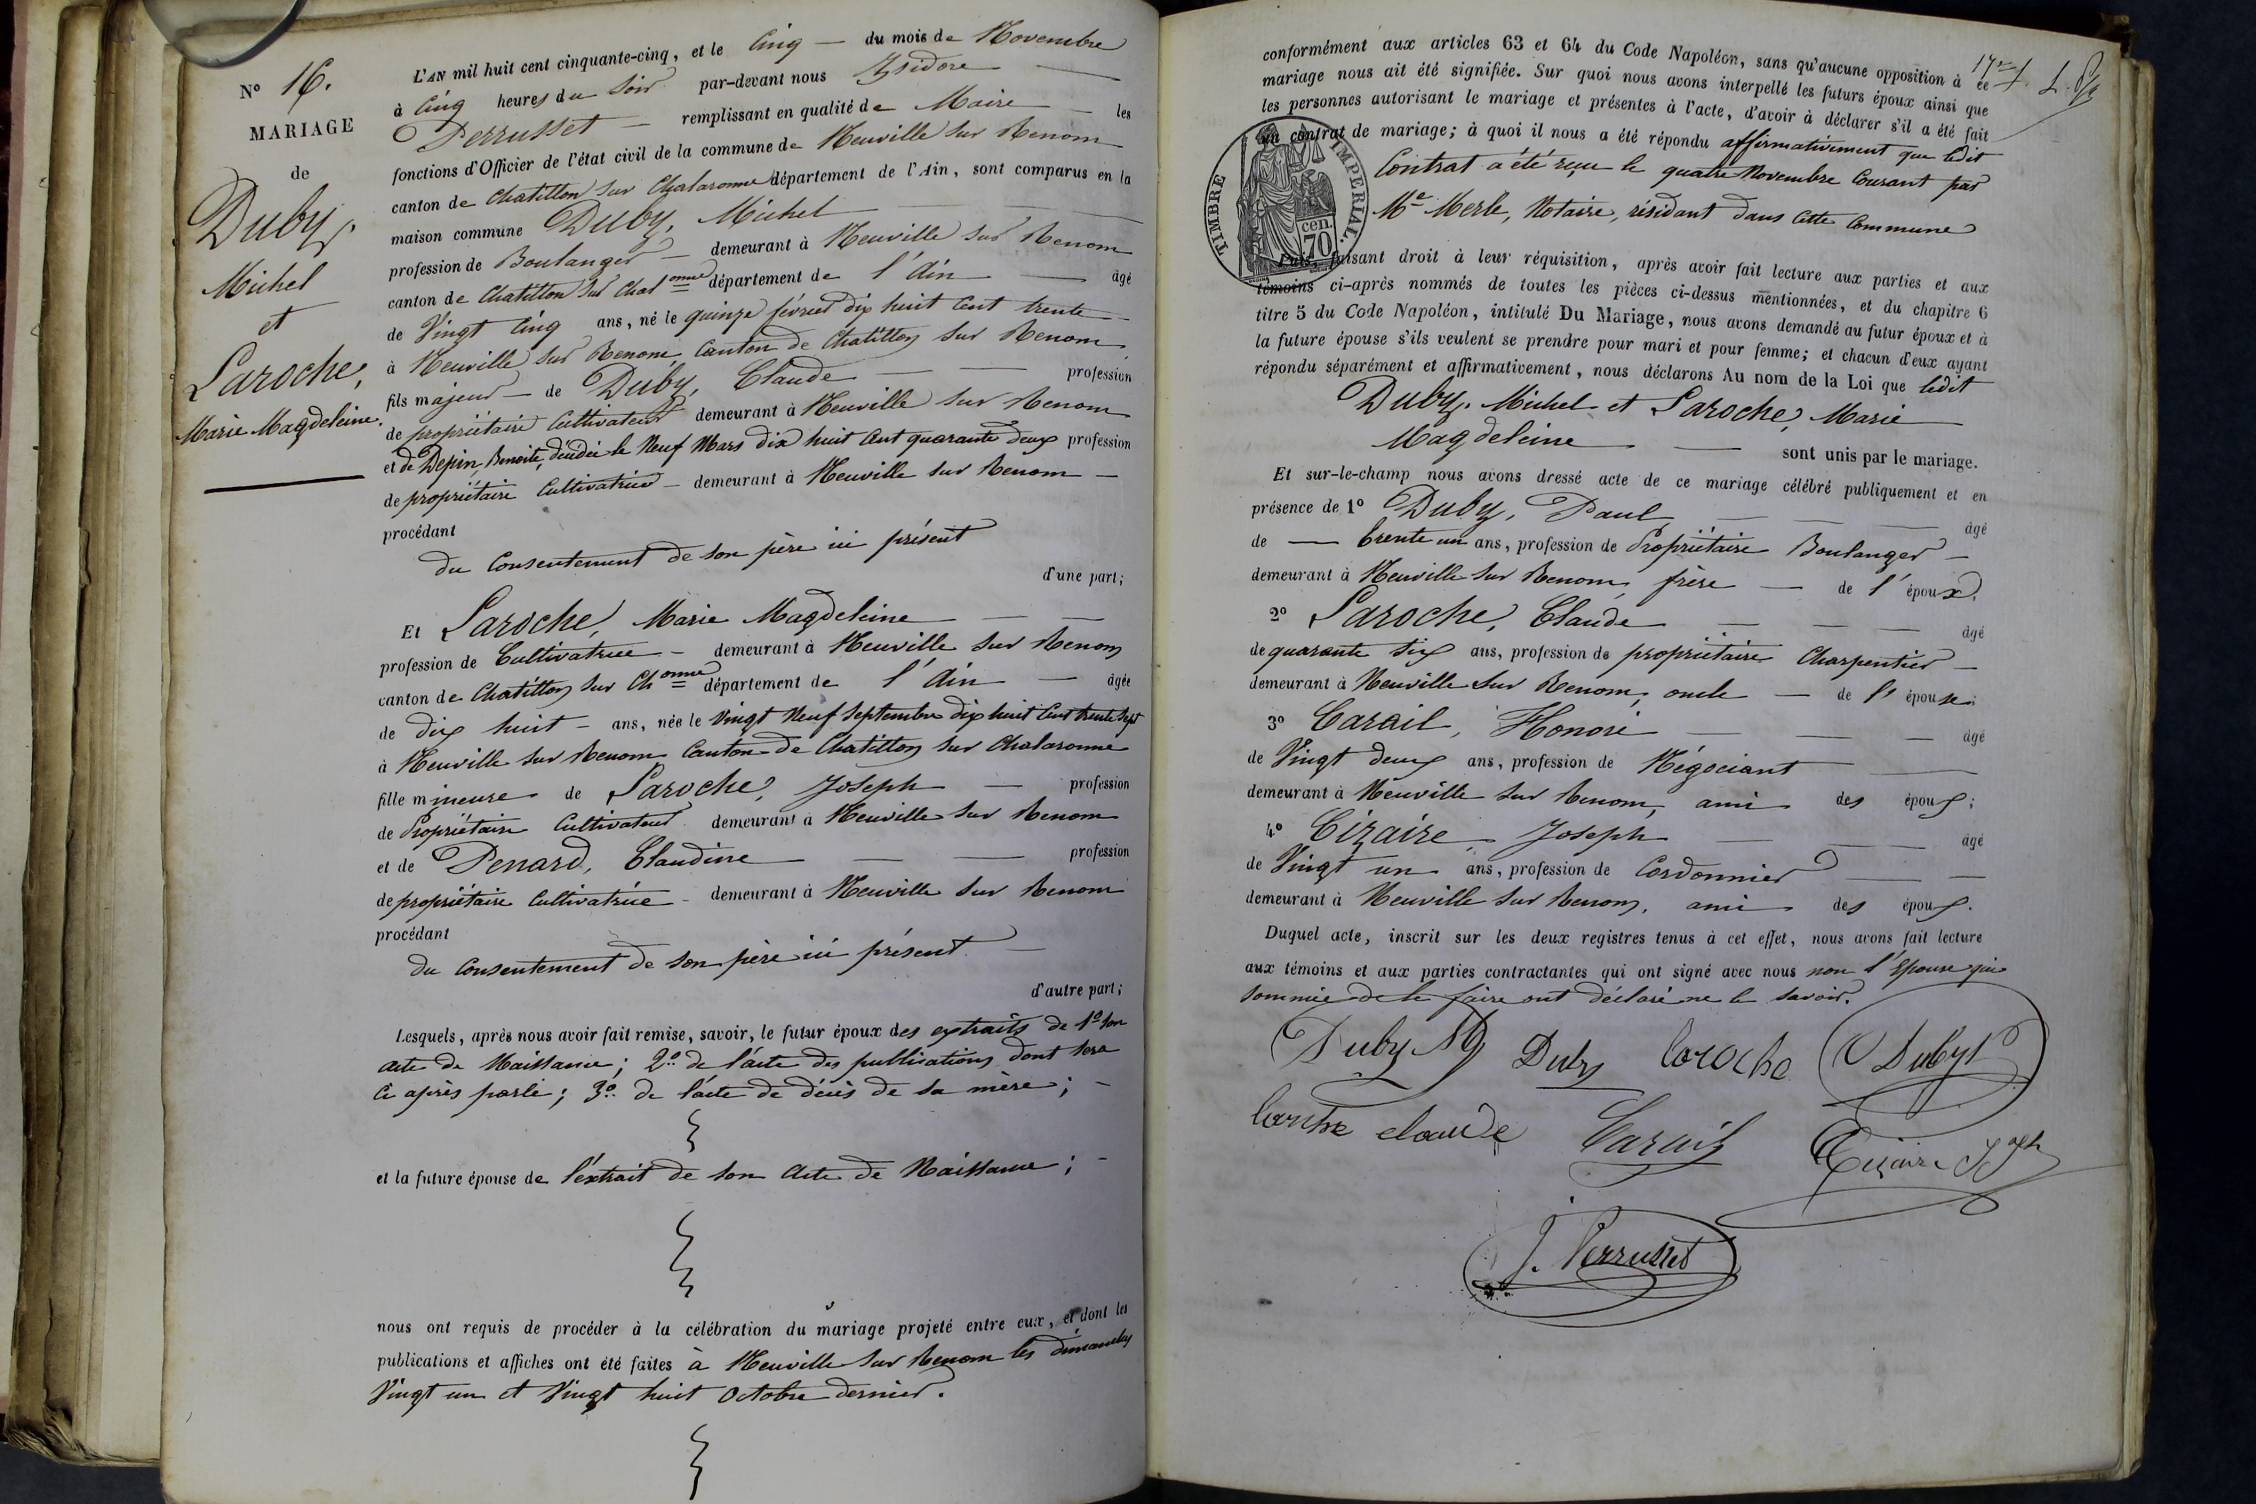 N° 16.
MARIAGE
de
Duby,
Michel
et
Laroche,
Marie Magdeleine.
L'AN mil huit cent cinquante-cinq, et le Cinq — du mois de Novembre
à Cinq heures du Soir par-devant nous Isidore —
Perrusset — remplissant en qualité de Maire — les
fonctions d'Officier de l'état civil de la commune de Neuville sur Renom
canton de Chatillon sur Chalaronne département de l'Ain, sont comparus en la
maison commune Duby, Michel —
profession de Boulanger — demeurant à Neuville sur Renom
canton de Chatillon sur Chalonne département de l'Ain — âgé
de Vingt Cinq ans, né le quinze février dix huit Cent trente —
à Neuville sur Renom, Canton de Chatillon sur Renom,
fils majeur — de Duby, Claude — — profession
de propriétaire Cultivateur demeurant à Neuville sur Renom
et de Depin, Benoite, décédée le Neuf Mars dix huit Cent quarante deux profession
de propriétaire Cultivatrice — demeurant à Neuville sur Renom —
procédant
du Consentement de son père ici présent
d'une part;
Et Laroche, Marie Magdeleine — —
profession de Cultivatrice — demeurant à Neuville sur Renom
canton de Chatillon sur Chonne département de l'Ain — âgée
de dix huit — ans, née le Vingt Neuf Septembre dix huit Cent trente sept
à Neuville sur Renom Canton de Chatillon sur Chalaronne
fille mineure de Laroche, Joseph — profession
de Propriétaire Cultivateur demeurant à Neuville sur Renom
et de Penard, Claudine — — profession
de propriétaire Cultivatrice — demeurant à Neuville sur Renom
procédant
du Consentement de son père ici présent —
d'autre part;
Lesquels, après nous avoir fait remise, savoir, le futur époux des extraits de 1° son
acte de Naissance; 2° de l'acte des publications dont sera
Ci après parlé; 3° de l'acte de décès de sa mère; —
et la future épouse de l'extrait de son Acte de Naissance; —
nous ont requis de procéder à la célébration du mariage projeté entre eux, et dont les
publications et affiches ont été faites à Neuville sur Renom les dimanches
Vingt un et Vingt huit Octobre dernier.
conformément aux articles 63 et 64 du Code Napoléon, sans qu'aucune opposition à ce
mariage nous ait été signifiée. Sur quoi nous avons interpellé les futurs époux ainsi que
les personnes autorisant le mariage et présentes à l'acte, d'avoir à déclarer s'il a été fait
un contrat de mariage; à quoi il nous a été répondu affirmativement que ledit
Contrat a été reçu le quatre Novembre Courant par
Me Merle, Notaire, résidant dans cette Commune
TIMBRE IMPERIAL.
cen.
70
Puis, faisant droit à leur réquisition, après avoir fait lecture aux parties et aux
témoins ci-après nommés de toutes les pièces ci-dessus mentionnées, et du chapitre 6
titre 5 du Code Napoléon, intitulé Du Mariage, nous avons demandé au futur époux et à
la future épouse s'ils veulent se prendre pour mari et pour femme; et chacun d'eux ayant
répondu séparément et affirmativement, nous déclarons Au nom de la Loi que ledit
Duby, Michel et Laroche, Marie
Magdeleine — sont unis par le mariage.
Et sur-le-champ nous avons dressé acte de ce mariage célébré publiquement et en
présence de 1° Duby, Paul — — — âgé
de — trente un ans, profession de Propriétaire Boulanger —
demeurant à Neuville sur Renom, frère — de l'époux,
2° Laroche, Claude — — — âgé
de quarante six ans, profession de propriétaire Charpentier —
demeurant à Neuville sur Renom, oncle — de l'épouse;
3° Carail, Honoré — — — âgé
de Vingt deux ans, profession de Négociant —
demeurant à Neuville sur Renom, ami des époux;
4° Cizaire, Joseph — — âgé
de Vingt un ans, profession de Cordonnier — —
demeurant à Neuville sur Renom, ami des époux.
Duquel acte, inscrit sur les deux registres tenus à cet effet, nous avons fait lecture
aux témoins et aux parties contractantes qui ont signé avec nous non l'Epouse qui
sommée de le faire ont déclaré ne le savoir.
Duby M Duby laroche Duby P
claude Carail Cizaire Jph
J. Perrusset